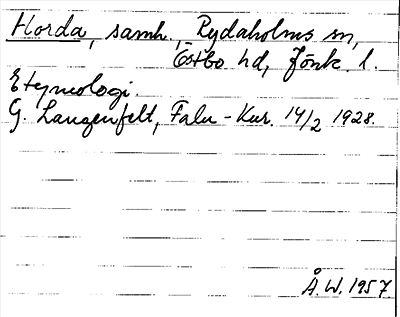 Horda, samh., Rydaholms sn,
Östbo hd, Jönk. l.
Etymologi.
G. Langenfelt, Falu-Kur. 14/2 1928.
Å.W. 1957